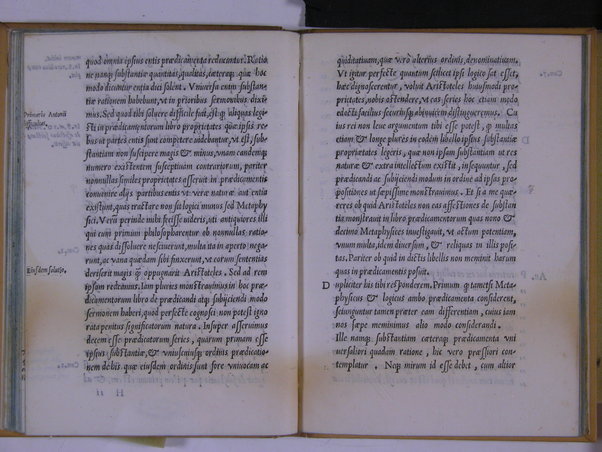 quod omnis ipsius entis prædicamenta reducantur. Ratio
ne nanq; substantiæ quantitas, qualitas, interaq. quæ hoc
modo dicuntur entia dici solent. Vniuersa enim substan
tiæ rationem habebunt, vt in prioribus sermonibus dixi-
mus. Sed quod tibi soluere difficile fuit, est. q; aliquas legi-
sti in prædicamentorum libro proprietates quæ ipsis re-
bus vt partes entis sunt competere videbantur, vt est, sub-
stantiam non suscipere magis & minus, vnam eandemq;
numero existentem susceptiuam contrariorum, pariter
nonnullas similes proprietates asserunt in prædicamentis
conuenire alijs partibus entis vt veræ naturæ aut entia
existunt, quas tractare non sat logici munus sed Metaphy
sici. Verum perinde mihi fecisse uideris, ati antiquiores illi
qui cum primum philosopharentur ob nonnullas ratio-
nes quas dissoluere nesciuerunt, multa ita in aperto nega-
runt, ac vana quædam sibi finxerunt, vt eorum sententias
deriserit magis q̃ oppugnarit Aristoteles, Sed ad rem
ipsam redeamus. Iam pluries monstrauimus in hoc præ-
dicamentorum libro de prædicandi atq; subijciendi modo
sermonem haberi, quod perfecte cognosci non potest igno
rata penitus significatorum natura. Insuper asseruimus
decem esse prædicatorum series, quarum primam esse
ipsius substantiæ, & vniuscuiusq; ordinis prædicatio-
nem debitis quæ eiusdem ordinis sunt fore vniuocam ac
H ii
Primaria Antonii
difficultas.
Eiusdem solutio.
quiditatiuam, quæ vero alterius ordinis, denominatiuam.
Vt igitur perfecte quantum scilicet ipsi logico sat esset,
hæc dignosceretur, voluit Aristoteles huiusmodi pro-
prietates, nobis ostendere, vt eas series hoc etiam modo
edocti facilius securiusq; abinuicem distingueremus. Cu
ius rei non leue argumentum tibi esse potest, q; multas
etiam & longe plures in eodem libello ipsius substantiæ
proprietates legeris, quæ non ipsam substantiam ut ens
naturæ & extra intellectum existit, insequuntur, sed
prædicandi ac subijciendi modum in ordine ad ipsas pro-
positiones ut sæpissime monstrauimus. Et si a me quæ-
reres ob quid Aristoteles non eas affectiones de substan
tia monstrauit in libro prædicamentorum quas nono &
decimo Metaphysices inuestigauit, vt actum potentiam,
vnum multa, idem diuersum, & reliquas in illis posi-
tas. Pariter ob quid in dictis libellis non meminit harum
quas in prædicamentis posuit.
Dupliciter his tibi respondetem. Primum q; tametsi Meta-
physicus & logicus ambo prædicamenta considerent,
seiunguntur tamen præter eam differentiam, cuius iam
nos sæpe meminimus alio modo considerandi.
Ille nanq; substantiam cæteraq; prædicamenta vni
uersaliori quadam ratione, hic vero præssiori con-
templatur. Neq; mirum id esse debet, cum altior